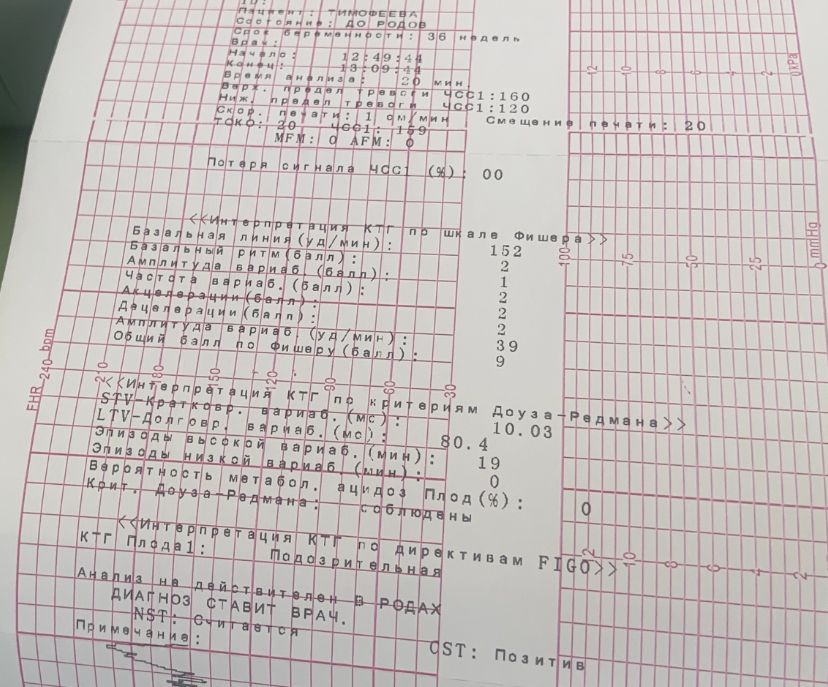 Пациент: ТИМОФЕЕВА
Состояние: ДО РОДОВ
Срок беременности: 36 недель
Врач:
Начало: 12:49:44
Конец: 13:09:44
Время анализа: 20 мин.
Верх. предел тревоги ЧСС1:160
Ниж. предел тревоги ЧСС1:120
Скор. печати: 1 см/мин Смещение печати: 20
ТОКО: 20 ЧСС1: 159
MFM: 0 AFM: 0
Потеря сигнала ЧСС1 (%): 00
<<Интерпретация КТГ по шкале Фишера>>
Базальная линия(уд/мин): 152
Базальный ритм(балл): 2
Амплитуда вариаб.(балл): 1
Частота вариаб.(балл): 2
Акцелерации(балл): 2
Децелерации(балл): 2
Амплитуда вариаб.(уд/мин): 39
Общий балл по Фишеру(балл): 9
<<Интерпретация КТГ по критериям Доуза-Редмана>>
STV-Кратковр. вариаб.(мс): 10.03
LTV-Долговр. вариаб.(мс): 80.4
Эпизоды высокой вариаб.(мин): 19
Эпизоды низкой вариаб.(мин): 0
Вероятность метабол. ацидоз Плод(%): 0
Крит. Доуза-Редмана: соблюдены
<<Интерпретация КТГ по директивам FIGO>>
КТГ Плода1: Подозрительная
Анализ не действителен В РОДАХ
ДИАГНОЗ СТАВИТ ВРАЧ.
NST: Считается CST: Позитив
Примечание:
FHR 240 bpm
210
180
150
120
90
60
30
100
75
50
25
0 mmHg
12
10
8
6
4
2
0 kPa
12
10
8
6
4
2